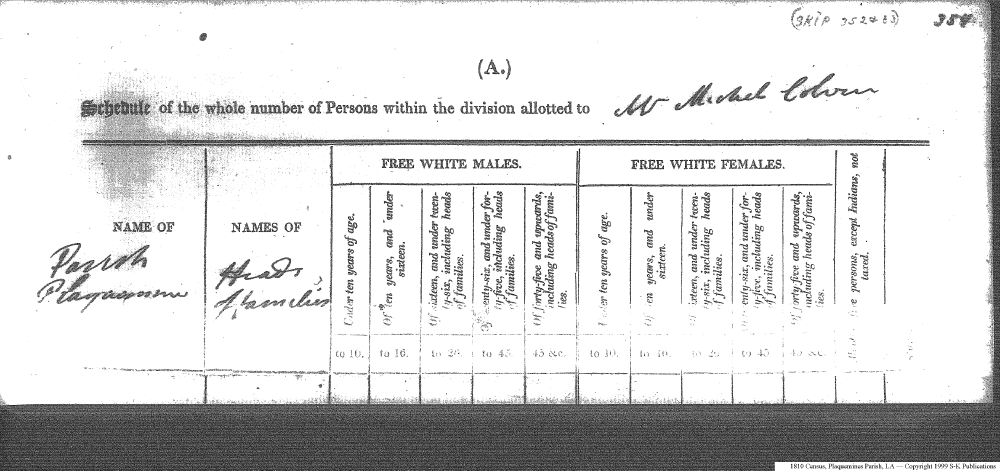 (SKIP 352 & 53) 354
(A.)
Schedule of the whole number of Persons within the division allotted to Mr Michel
FREE WHITE MALES. FREE WHITE FEMALES.
NAME OF
Parish
Plaquemine
NAMES OF
Heads
of families
Under ten years of age.
Of ten years, and under
sixteen.
Of sixteen, and under twen-
ty-six, including heads
of families.
Of twenty-six, and under for-
ty-five, including heads
of families.
Of forty-five and upwards,
including heads of fami-
lies.
Under ten years of age.
Of ten years, and under
sixteen.
Of sixteen, and under twen-
ty-six, including heads
of families.
Of twenty-six, and under for-
ty-five, including heads
of families.
Of forty-five and upwards,
including heads of fami-
lies.
free persons, except Indians, not
taxed.
to 10. to 16. to 26. to 45. 45 &c. to 10. to 16. to 26 to 45 45 &c.
1810 Census, Plaquemines Parish, LA — Copyright 1999 S-K Publications